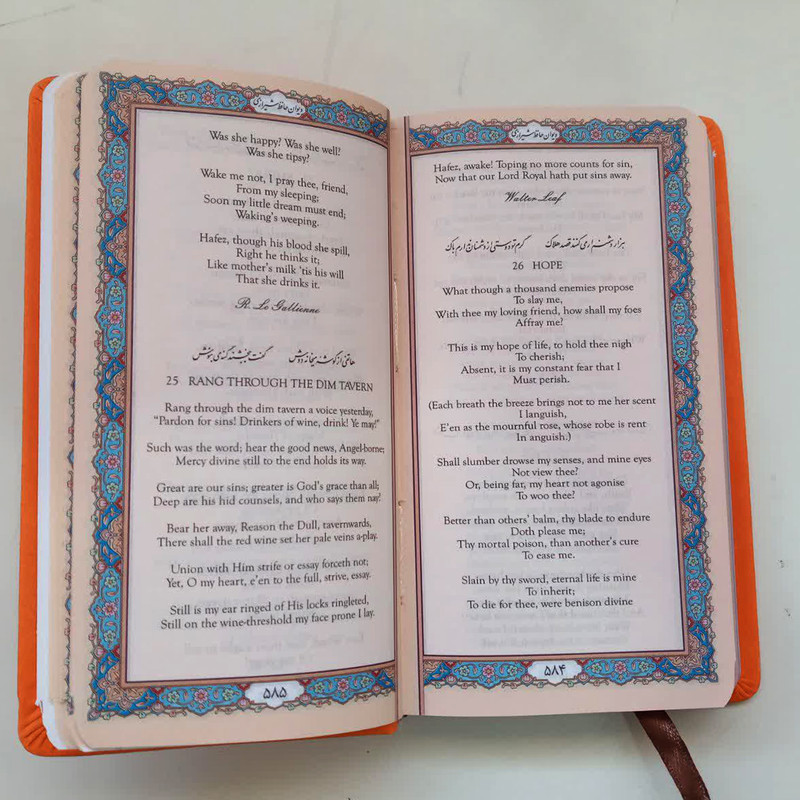 دیوان حافظ شیرازی
Was she happy? Was she well!
Was she tipsy?
Wake me not, I pray thee, friend,
From my sleeping;
Soon my little dream must end;
Waking's weeping.
Hafez, though his blood she spill,
Right he thinks it;
Like mother's milk 'tis his will
That she drinks it.
R. Le Gallienne
هاتفی از گوشه میخانه دوش گفت ببخشند گنه می بنوش
25 RANG THROUGH THE DIM TAVERN
Rang through the dim tavern a voice yesterday,
"Pardon for sins! Drinkers of wine, drink! Ye may!"
Such was the word; hear the good news, Angel-borne;
Mercy divine still to the end holds its way.
Great are our sins; greater is God's grace than all;
Deep are his hid counsels, and who says them nay!
Bear her away, Reason the Dull, tavernwards,
There shall the red wine set her pale veins a-play.
Union with Him strife or essay forceth not;
Yet, O my heart, e'en to the full, strive, essay.
Still is my ear ringed of His locks ringleted,
Still on the wine-threshold my face prone I lay.
۵۸۵
دیوان حافظ شیرازی
Hafez, awake! Toping no more counts for sin,
Now that our Lord Royal hath put sins away.
Walter Leaf
هزار دشمنم ار می کنند قصد هلاک گرم تو دوستی از دشمنان ندارم باک
26 HOPE
What though a thousand enemies propose
To slay me,
With thee my loving friend, how shall my foes
Affray me?
This is my hope of life, to hold thee nigh
To cherish;
Absent, it is my constant fear that I
Must perish.
(Each breath the breeze brings not to me her scent
I languish,
E'en as the mournful rose, whose robe is rent
In anguish.)
Shall slumber drowse my senses, and mine eyes
Not view thee?
Or, being far, my heart not agonise
To woo thee?
Better than others' balm, thy blade to endure
Doth please me;
Thy mortal poison, than another's cure
To ease me.
Slain by thy sword, eternal life is mine
To inherit;
To die for thee, were benison divine
۵۸۴